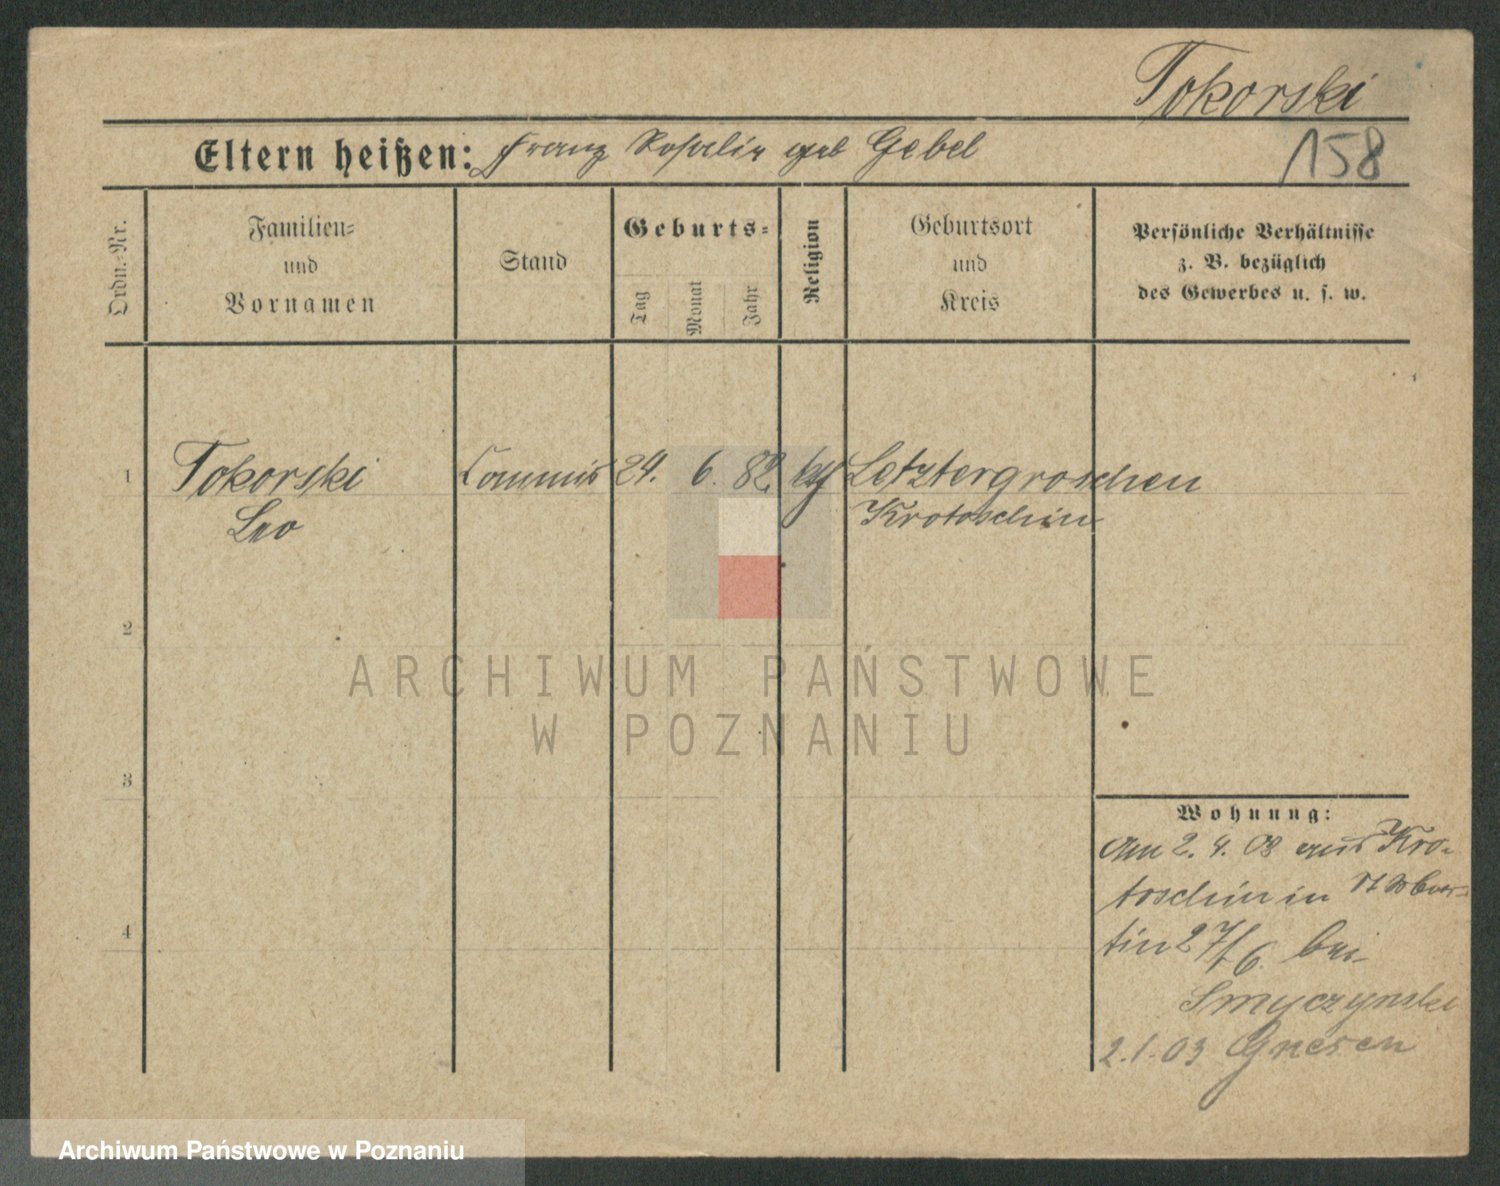 Tokorski
Eltern heißen: Franz Rosalie geb Gebel
158
Ordn.-Nr.
Familien-
und
Vornamen
Stand
Geburts-
Tag
Monat
Jahr
Religion
Geburtsort
und
Kreis
Persönliche Verhältnisse
z. B. bezüglich
des Gewerbes u. s. w.
1 Tokorski Commis 24. 6. 82 kth Letztergroschen
Leo Krotoschin
2
ARCHIWUM PAŃSTWOWE
W POZNANIU
3
Wohnung:
Am 2. 4. 08 aus Kro-
toschin in St
tin 27/6. bei
4
Smyczynski
2.1.03 Gnesen
Archiwum Państwowe w Poznaniu